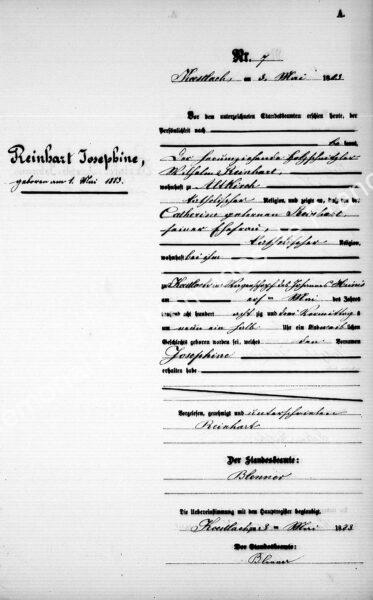 A.
Nr. 7
Kastlach, am 3. Mai 1883
Vor dem unterzeichneten Standesbeamten erschien heute, der
Persönlichkeit nach
be kannt,
Der herumziehende
Wilhelm Reinhart,
wohnhaft zu Altkirch
katholischer Religion, und zeigte an, daß von der
Catharine geborenen Reinhart,
seiner Ehefrau,
katholischer Religion,
wohnhaft bei ihm
Reinhart Josephine,
geboren am 1. Mai 1883.
zu Kastlach des Johannes
am Mai des Jahres
tausend acht hundert acht zig und drei Vormittags
um neun ein halb Uhr ein Kind weib lichen
Geschlechts geboren worden sei, welches den Vornamen
Josephine
erhalten habe
Vorgelesen, genehmigt und unterschrieben
Reinhart
Der Standesbeamte:
Blenner
Die Uebereinstimmung mit dem Hauptregister beglaubigt.
Kastlach, am 3. Mai 1883
Der Standesbeamte:
Blenner